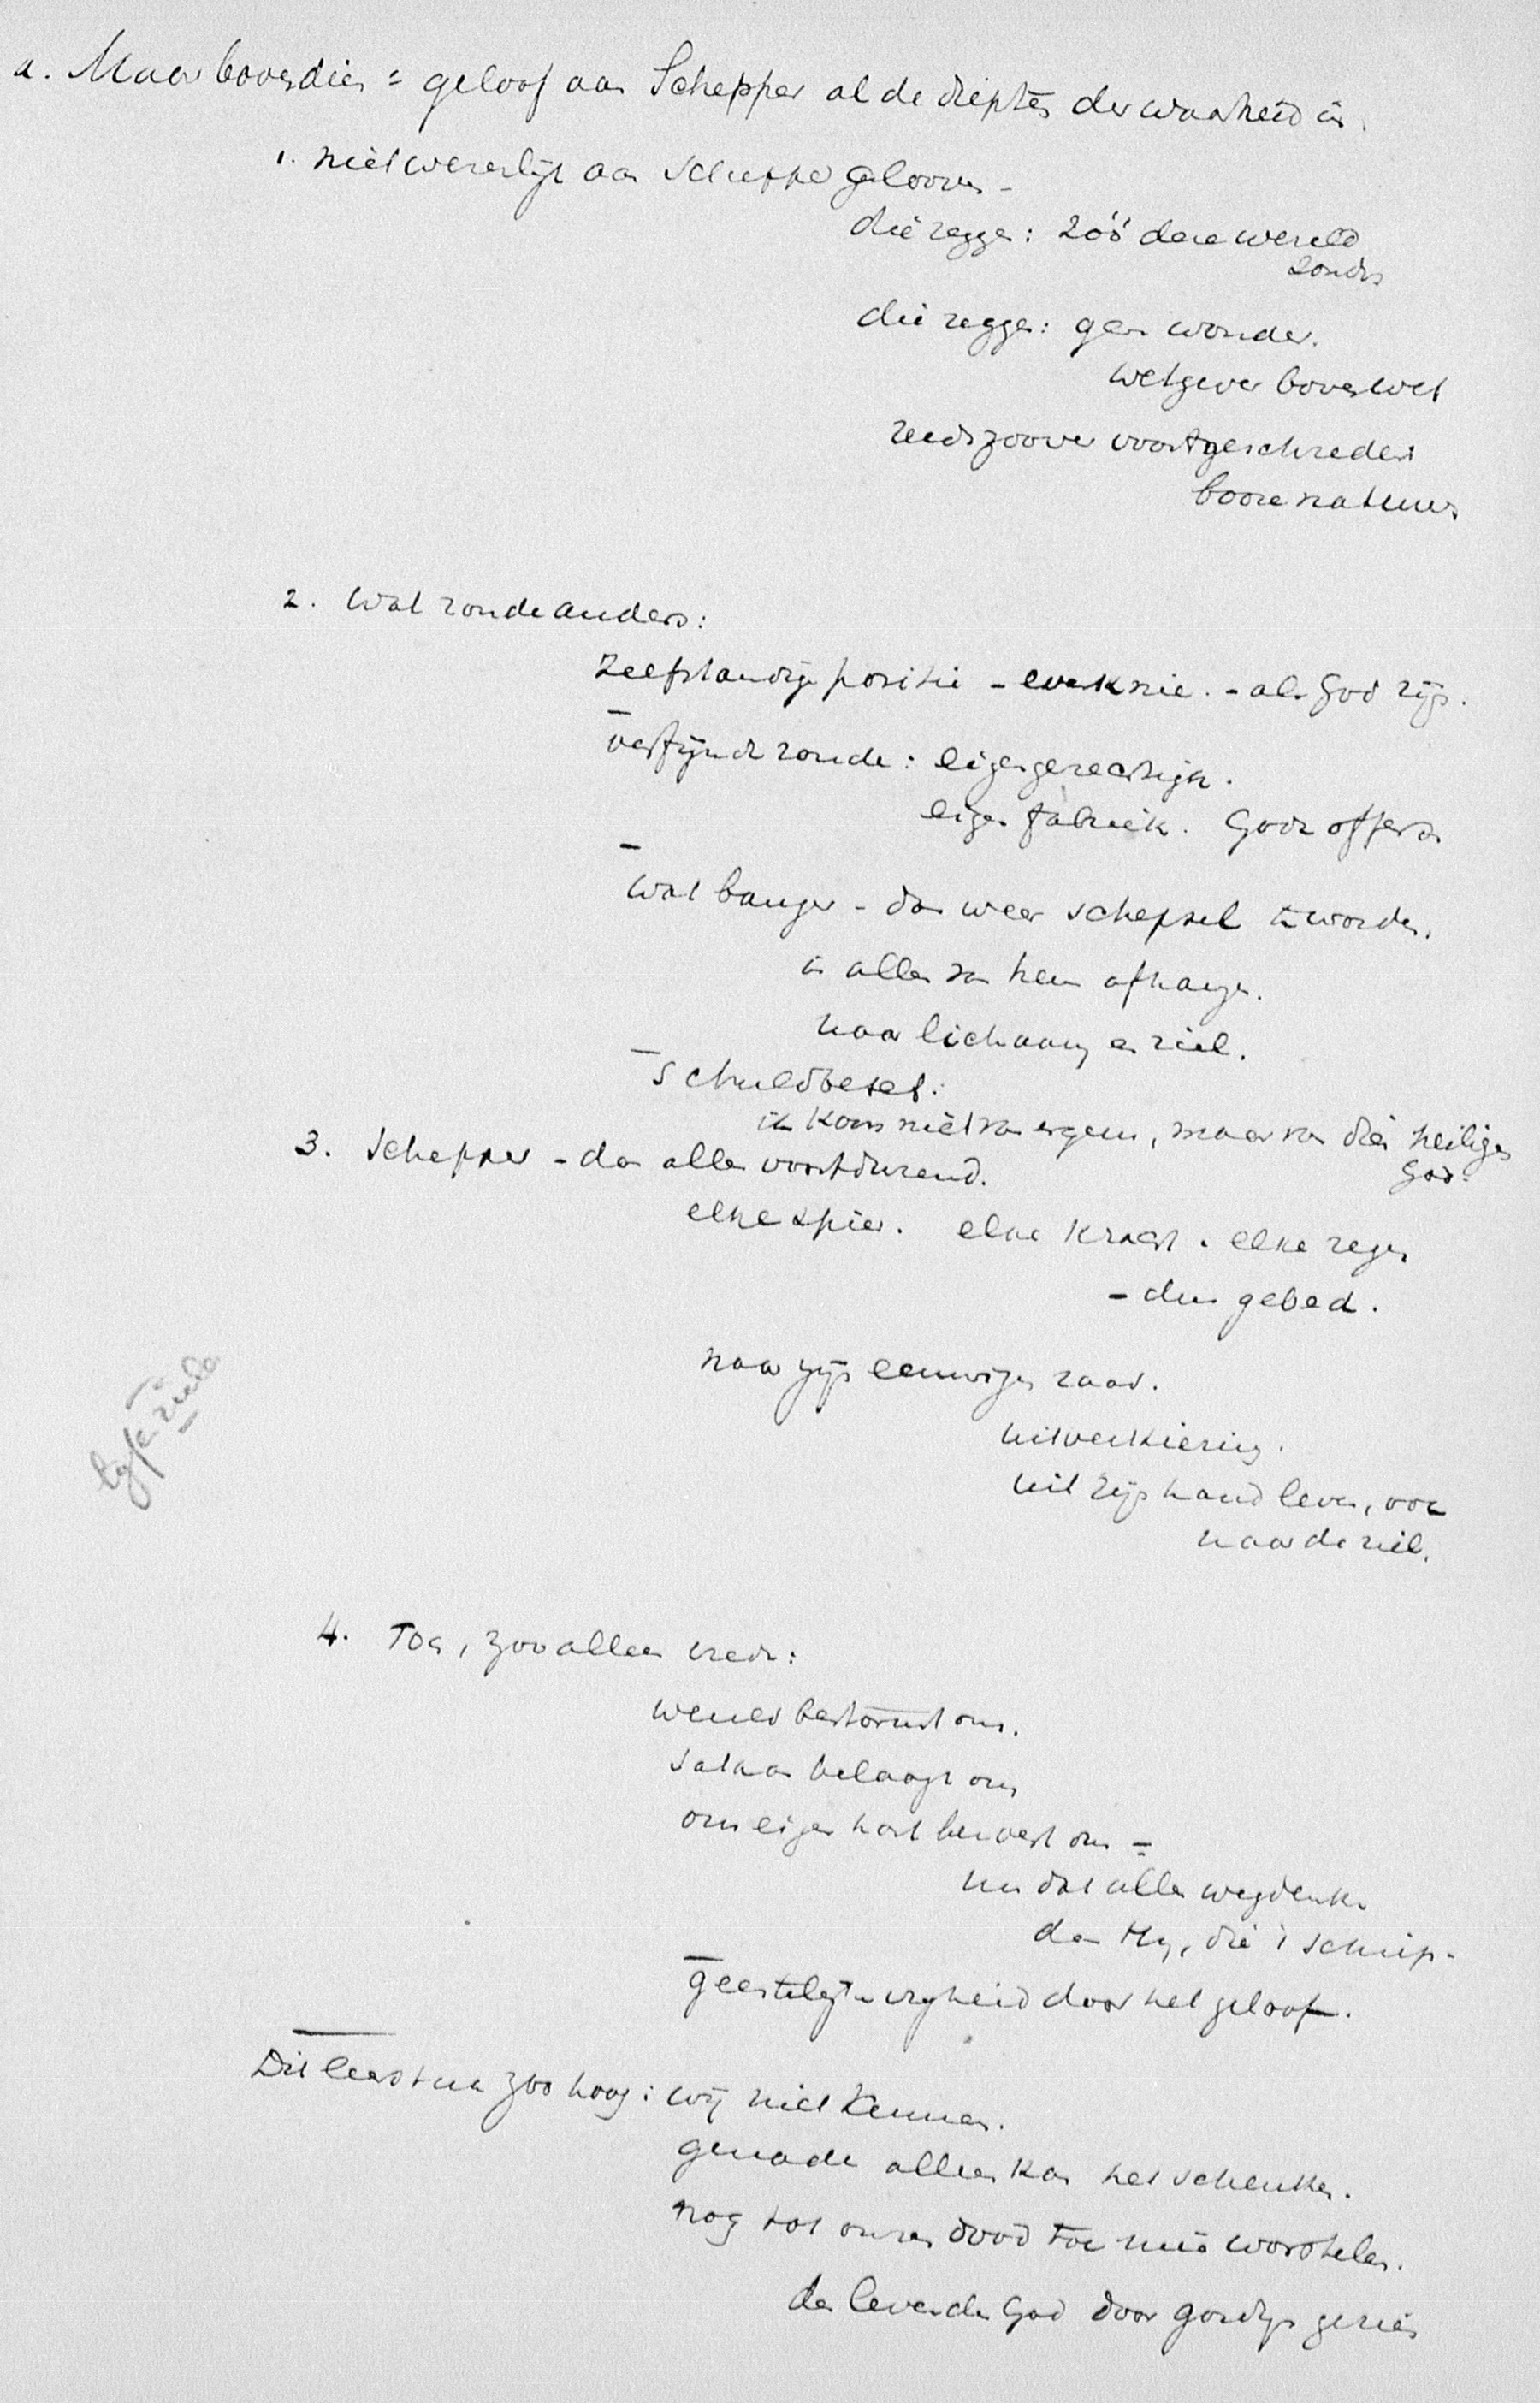 a. Maar bovendien = geloof aan Schepper al de dieptes der waarheid in.
1. niet wezenlijk aan Schepper gelooven -
die zegge: zóó deze wereld
zonder
die zegge: geen wonder.
wetgever boven wet
reeds zoover voortgeschreden
booze natuur
2. Wat zonde anders:
Zelfstandige positie - evenknie. - als God zijn.
- verfijnde zonde: eigengerechtigh.
eigen fabriek. Gode offeren
- Wat banger - dan weer schepsel te worden.
in alles van hem afhangen.
naar lichaam en ziel.
- Schuldbesef:
ik kom niet van ergens, maar van dien heiligen
God.
3. Schepper - dan alles voortdurend.
elke spier. elke kracht. elke regen
- dus gebed.
naar zijn eeuwigen raad.
uitverkiezing.
uit zijn hand leven, ook
naar de ziel.
4. Toch, zoo alleen vrede:
wereld bestormt ons.
Satan belaagt ons
ons eigen hart benart ons =
nu dat alles wegdenken
dan Hij, die 't schiep.
- geestelijke vrijheid door het geloof.
Dit leerstuk zoo hoog: wij niet kennen.
genade alleen kan het schenken.
nog tot onzen dood toe mee worstelen.
den levenden God door gordijn gezien